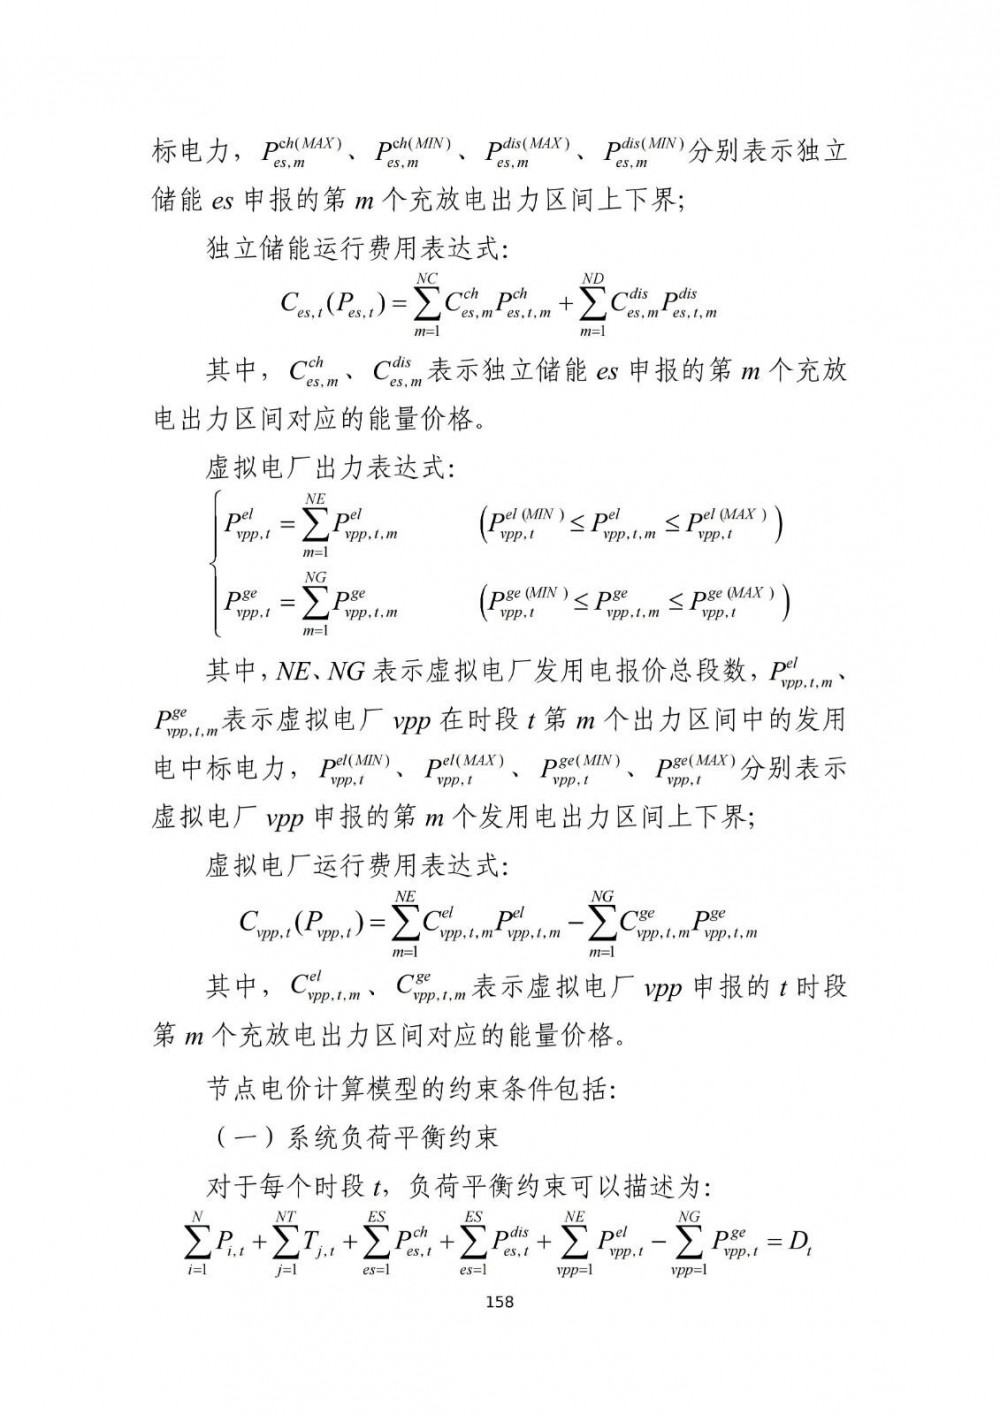 标电力，$P_{es,m}^{ch(MAX)}$、$P_{es,m}^{ch(MIN)}$、$P_{es,m}^{dis(MAX)}$、$P_{es,m}^{dis(MIN)}$分别表示独立
储能 es 申报的第 m 个充放电出力区间上下界；
独立储能运行费用表达式：
$C_{es,t}(P_{es,t})=\sum_{m=1}^{NC}C_{es,m}^{ch}P_{es,t,m}^{ch}+\sum_{m=1}^{ND}C_{es,m}^{dis}P_{es,t,m}^{dis}$
其中，$C_{es,m}^{ch}$、$C_{es,m}^{dis}$表示独立储能 es 申报的第 m 个充放
电出力区间对应的能量价格。
虚拟电厂出力表达式：
$P_{vpp,t}^{el}=\sum_{m=1}^{NE}P_{vpp,t,m}^{el}\quad(P_{vpp,t}^{el(MIN)}\le P_{vpp,t,m}^{el}\le P_{vpp,t}^{el(MAX)})$
$P_{vpp,t}^{ge}=\sum_{m=1}^{NG}P_{vpp,t,m}^{ge}\quad(P_{vpp,t}^{ge(MIN)}\le P_{vpp,t,m}^{ge}\le P_{vpp,t}^{ge(MAX)})$
其中，NE、NG 表示虚拟电厂发用电报价总段数，$P_{vpp,t,m}^{el}$、
$P_{vpp,t,m}^{ge}$表示虚拟电厂 vpp 在时段 t 第 m 个出力区间中的发用
电中标电力，$P_{vpp,t}^{el(MIN)}$、$P_{vpp,t}^{el(MAX)}$、$P_{vpp,t}^{ge(MIN)}$、$P_{vpp,t}^{ge(MAX)}$分别表示
虚拟电厂 vpp 申报的第 m 个发用电出力区间上下界；
虚拟电厂运行费用表达式：
$C_{vpp,t}(P_{vpp,t})=\sum_{m=1}^{NE}C_{vpp,t,m}^{el}P_{vpp,t,m}^{el}-\sum_{m=1}^{NG}C_{vpp,t,m}^{ge}P_{vpp,t,m}^{ge}$
其中，$C_{vpp,t,m}^{el}$、$C_{vpp,t,m}^{ge}$表示虚拟电厂 vpp 申报的 t 时段
第 m 个充放电出力区间对应的能量价格。
节点电价计算模型的约束条件包括：
（一）系统负荷平衡约束
对于每个时段 t，负荷平衡约束可以描述为：
$\sum_{i=1}^{N}P_{i,t}+\sum_{j=1}^{NT}T_{j,t}+\sum_{es=1}^{ES}P_{es,t}^{ch}+\sum_{es=1}^{ES}P_{es,t}^{dis}+\sum_{vpp=1}^{NE}P_{vpp,t}^{el}-\sum_{vpp=1}^{NG}P_{vpp,t}^{ge}=D_t$
158